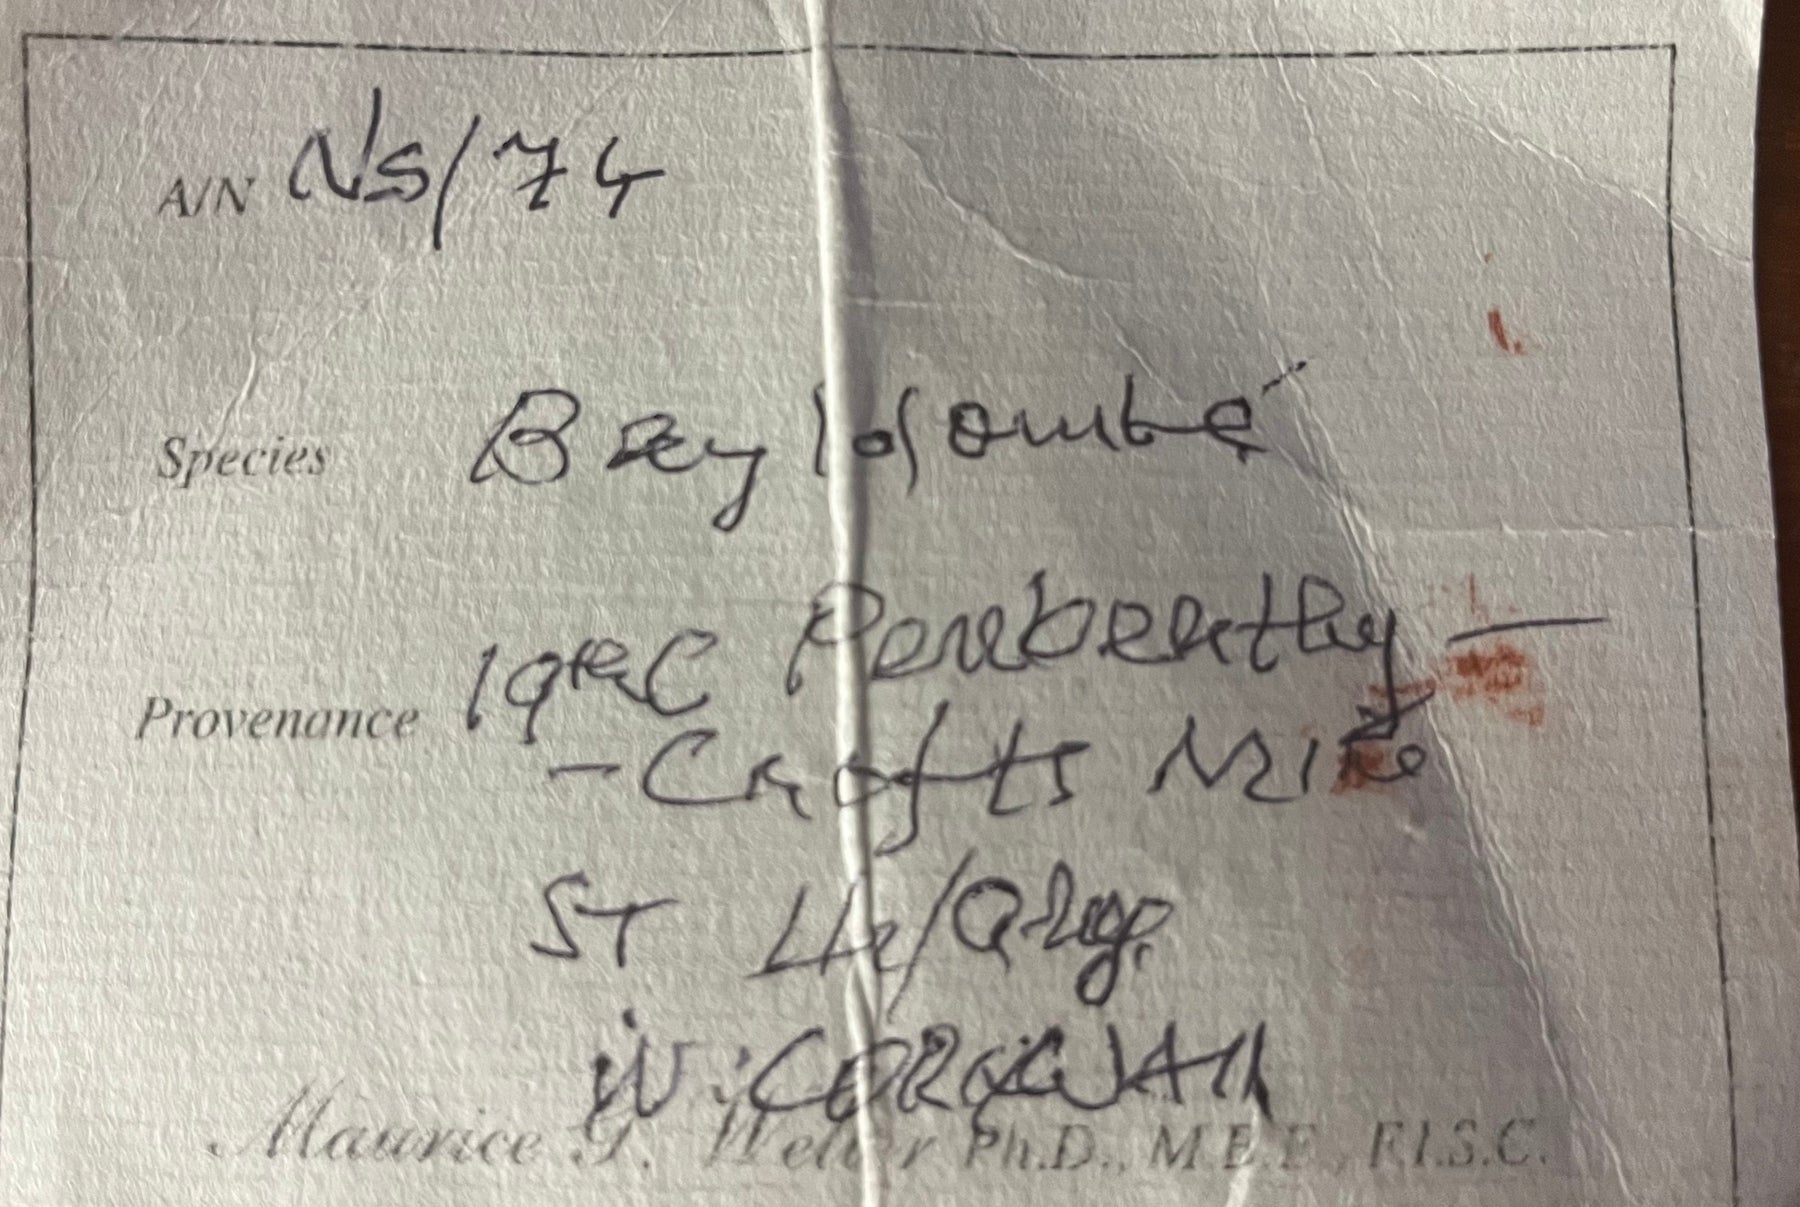 A/N NS/74
Species Bayldonite
Provenance 19thC Penberthy —
- Crofts Mine
ST
W. CORNWALL
Maurice G. Weller Ph.D., M.B.E., F.I.S.C.